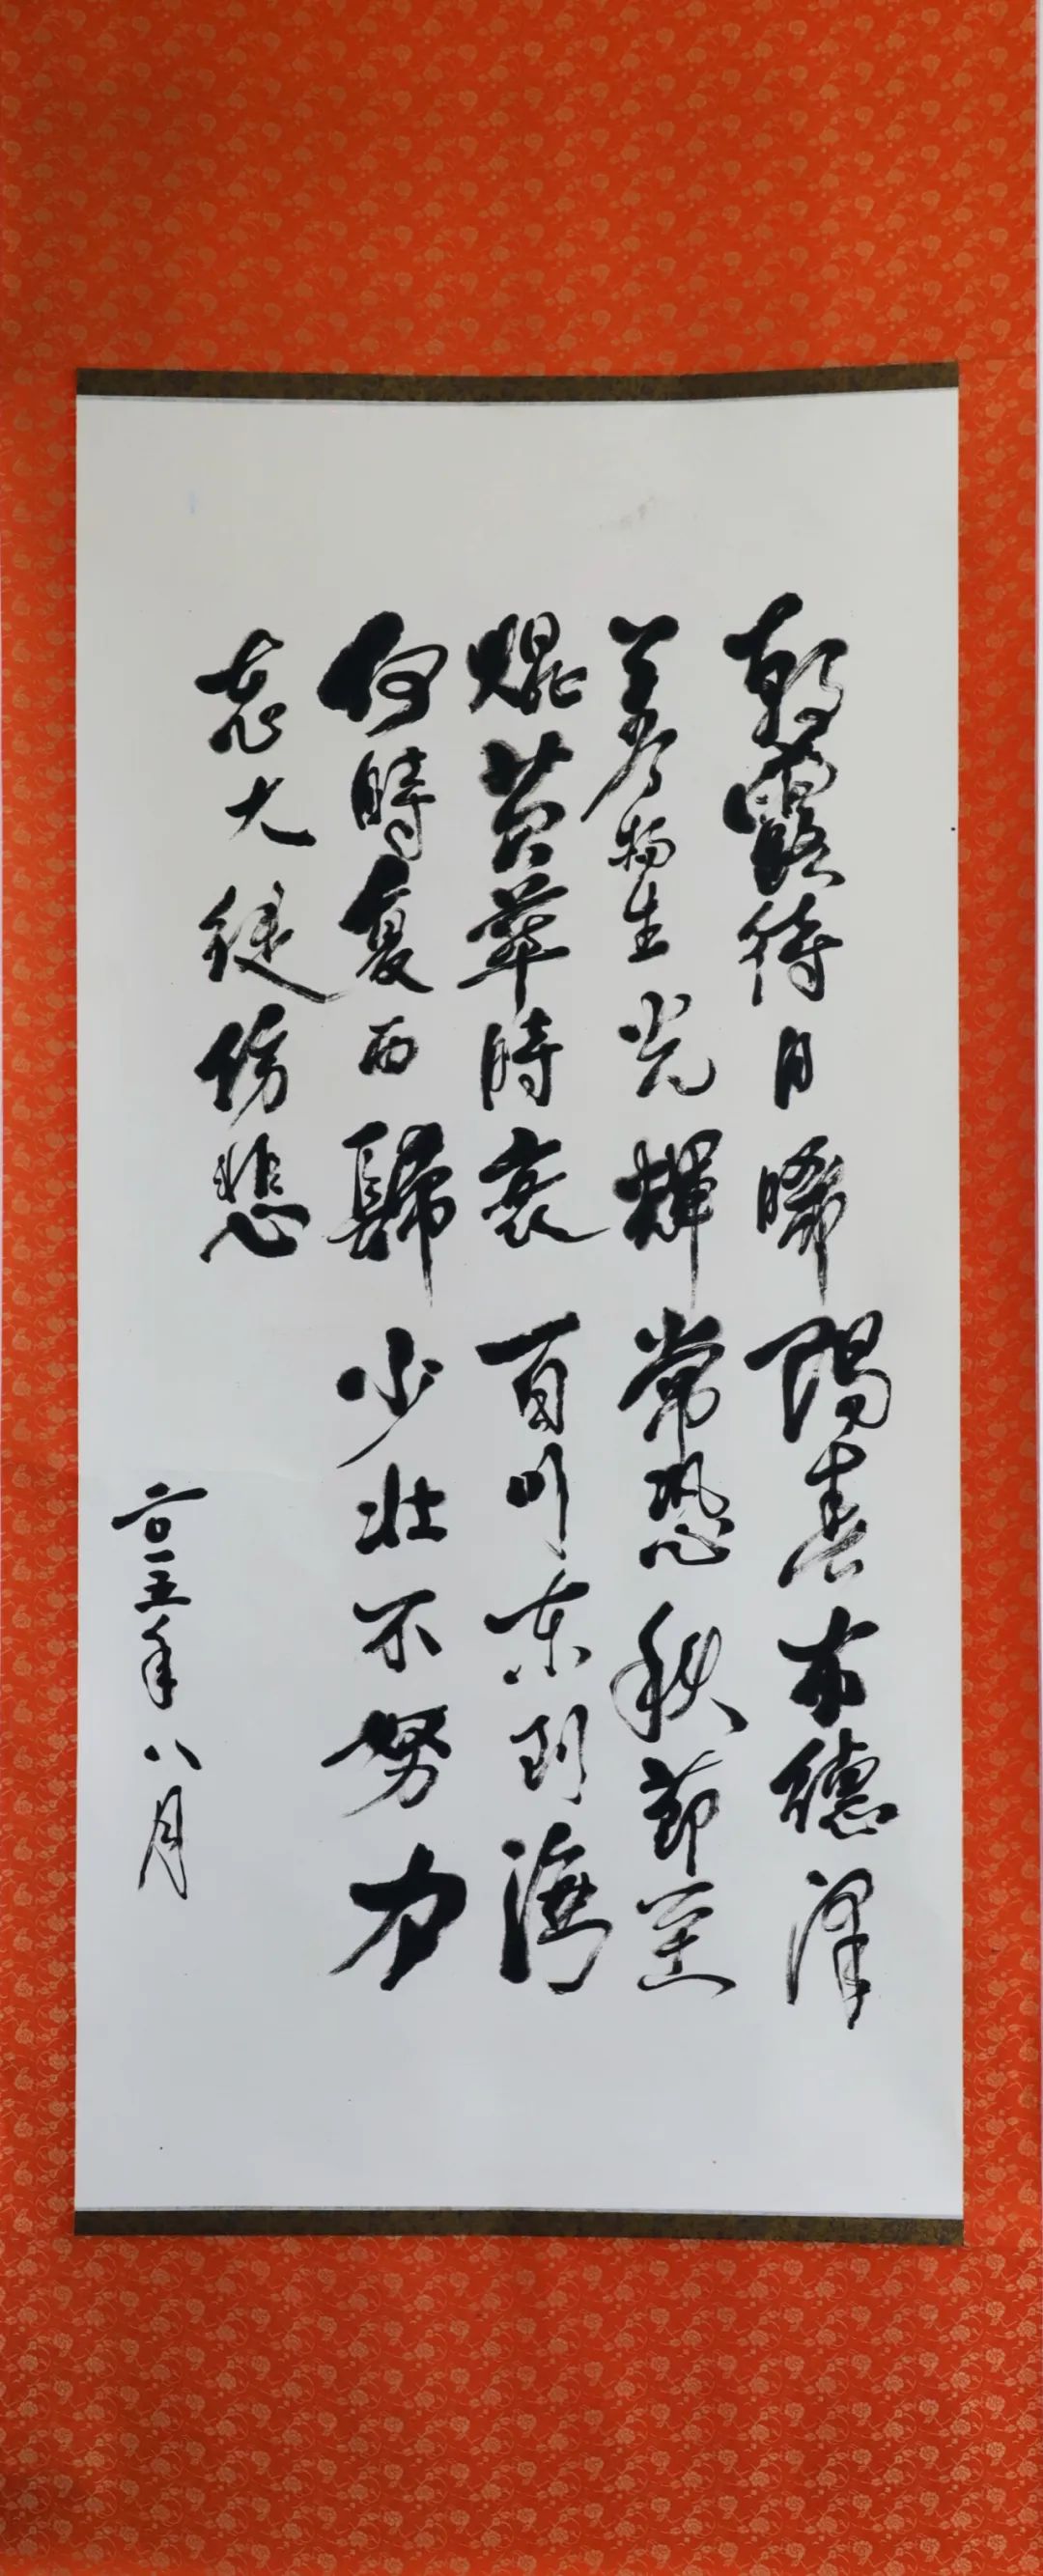 朝露待日晞陽春布德澤
萬物生光輝常恐秋節至
焜黄華時衰百川东到海
何時复西歸少壮不努力
老大徒傷悲
二〇一五年八月